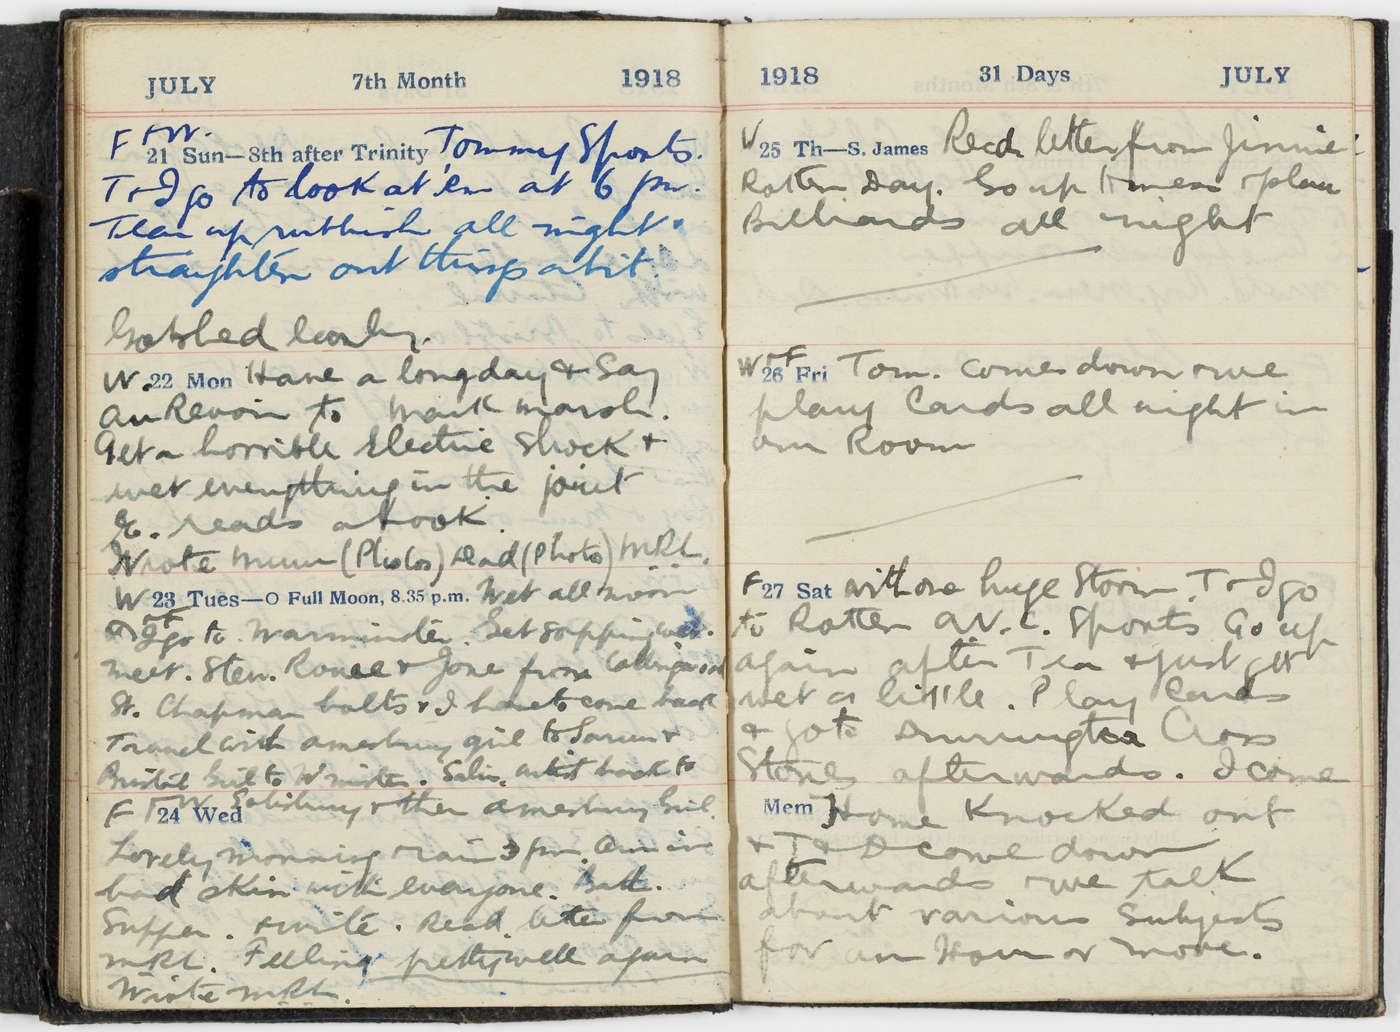 JULY 7th Month 1918
F & W.
21 Sun—8th after Trinity Tommy Sports.
T & I go to look at 'em at 6 pm.
Tear up rubbish all night &
straighten out things a bit.
Got to bed early.
W. 22 Mon Have a long day & Say
Au Revoir to Mark Marsh.
Get a horrible Electric Shock &
wet everything in the joint
&. reads a book.
Wrote Mum (Photos) Dead (Photo) MRt.
W 23 Tues—O Full Moon, 8.35 p.m. Wet all
& I go to Warminster. Get sopping wet.
meet. Stew. & from
St. Chapman bolts & I have to come back
Travel with amesbury girl to Sarum &
Bristol Girl to W'minster. Salis, artist back to
F & W Salisbury & then amesbury Girl.
24 Wed
Lovely morning rain 3 pm. Am in
bad skin with everyone. Bath.
Supper. & write. Recd. letter from
MRt. Feeling pretty well again
Wrote MRt.
1918 31 Days JULY
W 25 Th—S. James Recd letter from Jinnie
Rotten Day. Go up to mess & play
Billiards all night
W & F
26 Fri Tom. comes down & we
play Cards all night in
our Room
F 27 Sat with one huge Storm. T & I go
to Rotten A.V.C. Sports Go up
again after Tea & just get
wet a little. Play Cards
& go to Durrington Cross
Stones afterwards. I come
Mem Home Knocked out
& T & D come down
afterwards & we talk
about various Subjects
for an Hour or more.